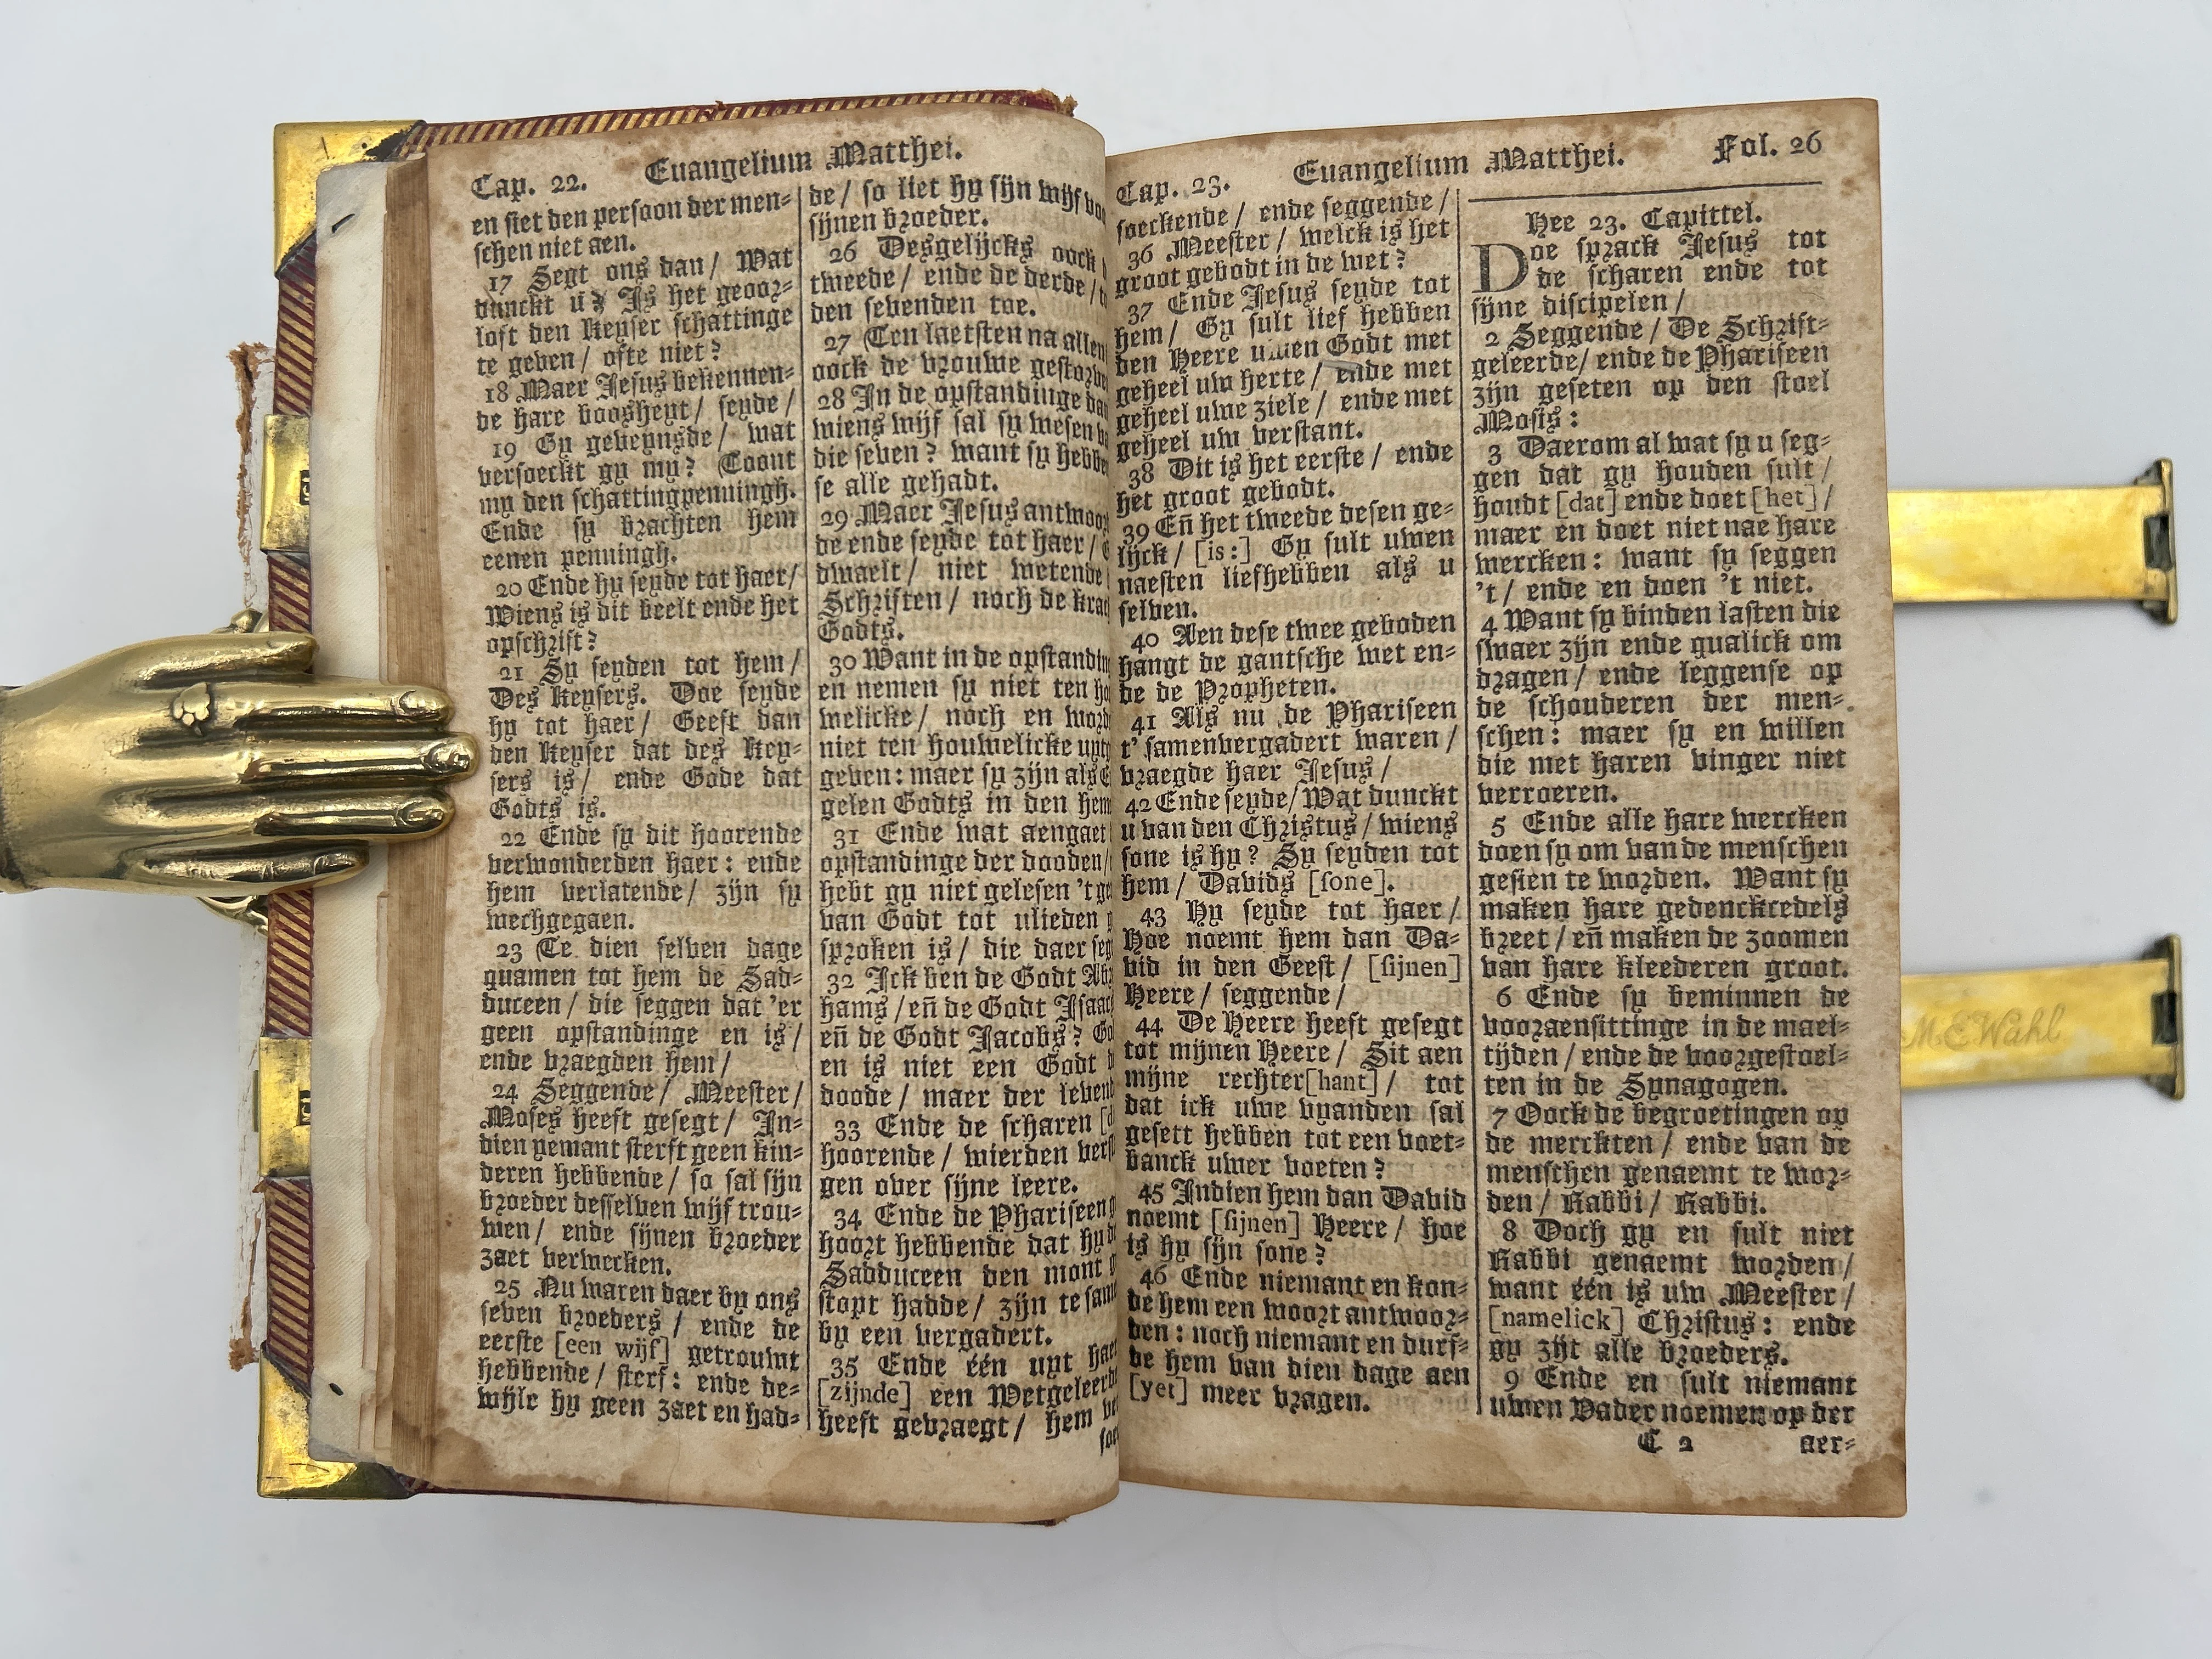 Cap. 22. Euangelium Matthei.
en siet den persoon der men-
schen niet aen.
17 Segt ons dan/ Wat
dunckt u? Is het geoor-
loft den Keyser schattinge
te geven/ ofte niet?
18 Maer Jesus bekennen-
de hare boosheyt/ seyde/
19 Gy geveynsde/ wat
versoeckt gy my? Toont
my den schattingpenningh.
Ende sy brachten hem
eenen penningh.
20 Ende hy seyde tot haer/
Wiens is dit beelt ende het
opschrift?
21 Sy seyden tot hem/
Des Keysers. Doe seyde
hy tot haer/ Geeft dan
den Keyser dat des Key-
sers is/ ende Gode dat
Godts is.
22 Ende sy dit hoorende
verwonderden haer: ende
hem verlatende/ zijn sy
wechgegaen.
23 Te dien selven dage
quamen tot hem de Sad-
duceen/ die seggen dat 'er
geen opstandinge en is/
ende vraegden hem/
24 Seggende/ Meester/
Moses heeft gesegt/ In-
dien yemant sterft geen kin-
deren hebbende/ so sal sijn
broeder desselven wijf trou-
wen/ ende sijnen broeder
zaet verwecken.
25 Nu waren daer by ons
seven broeders/ ende de
eerste [een wijf] getrouwt
hebbende/ sterf: ende de-
wijle hy geen zaet en had-
de/ so liet hy sijn wijf
sijnen broeder.
26 Desgelijcks oock
tweede/ ende de derde/
den sevenden toe.
27 Ten laetsten na allen
oock de vrouwe
28 In de opstandinge
wiens wijf sal sy wesen
die seven? want sy
se alle gehadt.
29 Maer Jesus
de ende seyde tot haer/
dwaelt/ niet wetende
Schriften/ noch de
Godts.
30 Want in de
en nemen sy niet ten
welicke/ noch en
niet ten houwelicke
geven: maer sy zijn als
gelen Godts in den
31 Ende wat aengaet
opstandinge der dooden/
hebt gy niet gelesen 't
van Godt tot ulieden
sproken is/ die daer
32 Ick ben de Godt
hams/ eñ de Godt
eñ de Godt Jacobs?
en is niet een Godt
doode/ maer der
33 Ende de scharen
hoorende/ wierden
gen over sijne leere.
34 Ende de Phariseen
hoort hebbende dat hy
Sadduceen den mont
stopt hadde/ zijn te
by een vergadert.
35 Ende één uyt
[zijnde] een
heeft gevraegt/ hem
Cap. 23. Euangelium Matthei. Fol. 26
soeckende/ ende seggende/
36 Meester/ welck is het
groot gebodt in de wet?
37 Ende Jesus seyde tot
hem/ Gy sult lief hebben
den Heere uwen Godt met
geheel uw herte/ ende met
geheel uwe ziele/ ende met
geheel uw verstant.
38 Dit is het eerste/ ende
het groot gebodt.
39 Eñ het tweede desen ge-
lijck/ [is:] Gy sult uwen
naesten liefhebben als u
selven.
40 Aen dese twee geboden
hangt de gantsche wet en-
de de Propheten.
41 Als nu de Phariseen
t' samenvergadert waren/
vraegde haer Jesus/
42 Ende seyde/ Wat dunckt
u van den Christus/ wiens
sone is hy? Sy seyden tot
hem/ Davids [sone].
43 Hy seyde tot haer/
Hoe noemt hem dan Da-
vid in den Geest/ [sijnen]
Heere/ seggende/
44 De Heere heeft gesegt
tot mijnen Heere/ Sit aen
mijne rechter[hant]/ tot
dat ick uwe vyanden sal
gesett hebben tot een voet-
banck uwer voeten?
45 Indien hem dan David
noemt [sijnen] Heere/ hoe
is hy sijn sone?
46 Ende niemant en kon-
de hem een woort antwoor-
den: noch niemant en durf-
de hem van dien dage aen
[yet] meer vragen.
Hee 23. Capittel.
Doe sprack Jesus tot
de scharen ende tot
sijne discipelen/
2 Seggende/ De Schrift-
geleerde/ ende de Phariseen
zijn geseten op den stoel
Mosis:
3 Daerom al wat sy u seg-
gen dat gy houden sult/
houdt [dat] ende doet [het]/
maer en doet niet nae hare
wercken: want sy seggen
't/ ende en doen 't niet.
4 Want sy binden lasten die
swaer zijn ende qualick om
dragen/ ende leggense op
de schouderen der men-
schen: maer sy en willen
die met haren vinger niet
verroeren.
5 Ende alle hare wercken
doen sy om van de menschen
gesien te worden. Want sy
maken hare gedenckcedels
breet/ eñ maken de zoomen
van hare kleederen groot.
6 Ende sy beminnen de
vooraensittinge in de mael-
tijden/ ende de voorgestoel-
ten in de Synagogen.
7 Oock de begroetingen op
de merckten/ ende van de
menschen genaemt te wor-
den/ Rabbi/ Rabbi.
8 Doch gy en sult niet
Rabbi genaemt worden/
want één is uw Meester/
[namelick] Christus: ende
gy zijt alle broeders.
9 Ende en sult niemant
uwen Vader noemen op der
C 2 aer-
M E Wahl